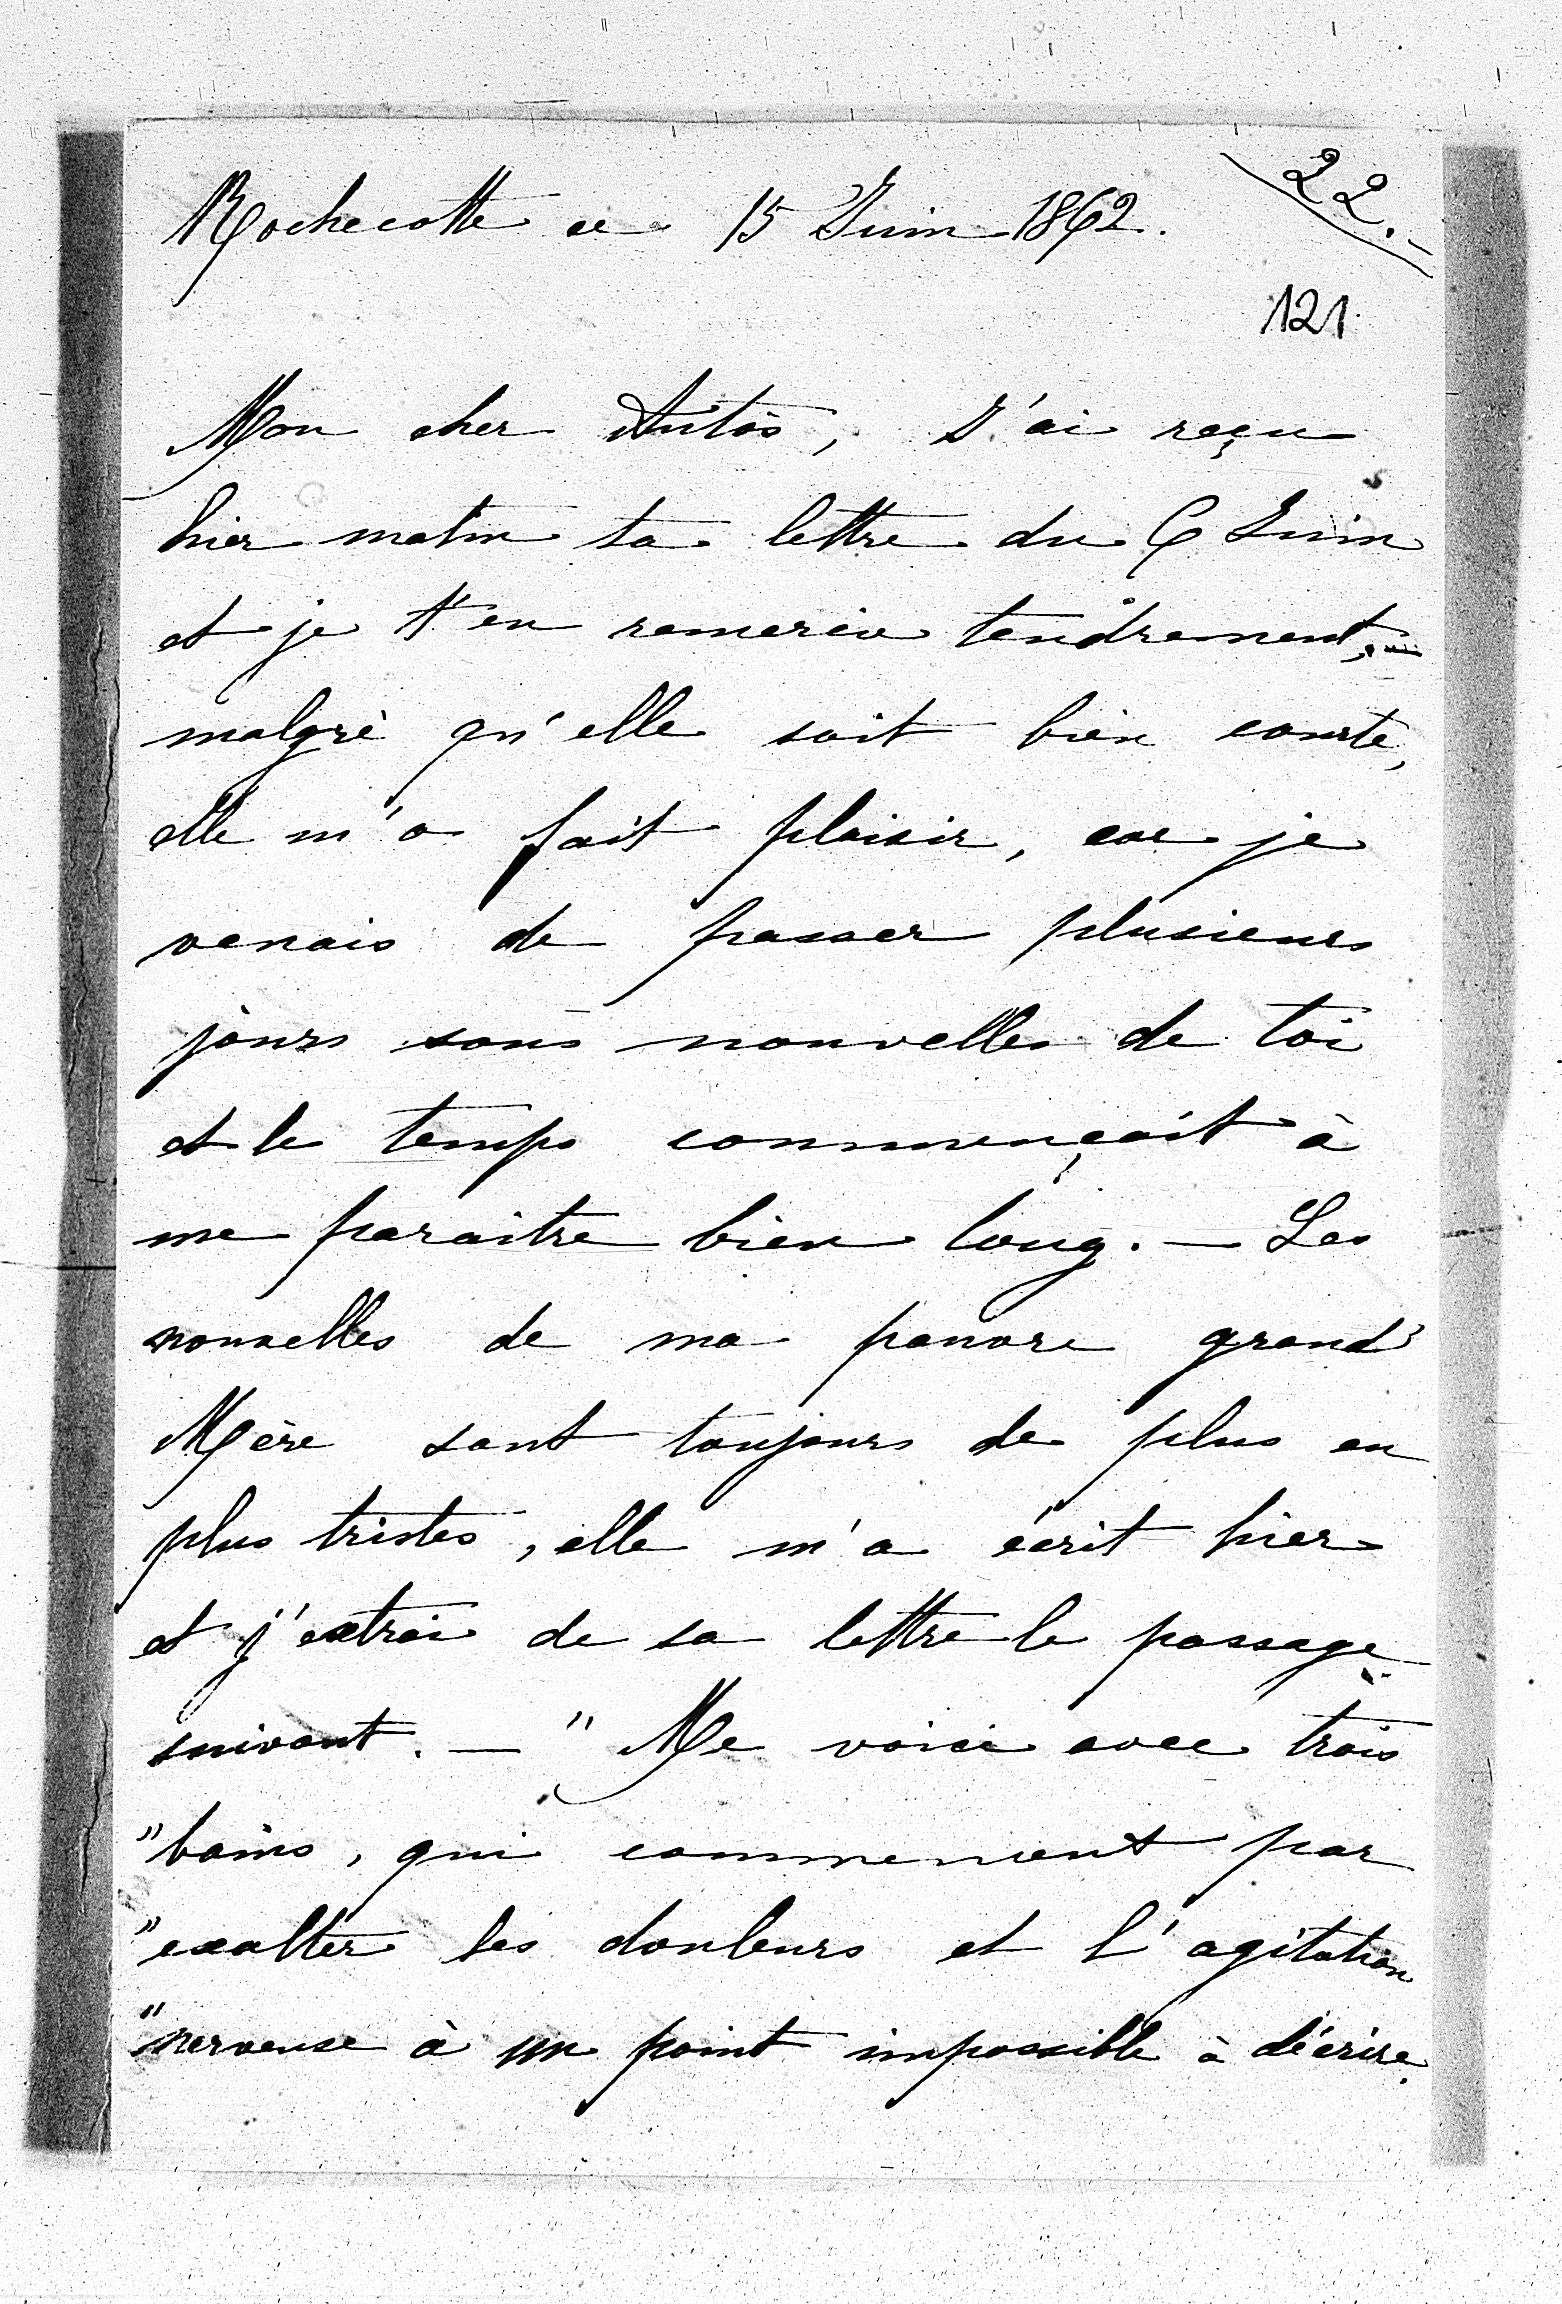 22.
Rochecotte ce 15 Juin 1862.
121.
Mon cher Antòs, J'ai reçu
hier matin ta lettre du 6 Juin
et je t'en remercie tendrement,
malgrè qu'elle soit bien courte,
elle m'a fait plaisir, car je
venais de passer plusieurs
jours sans nouvelles de toi
et le temps commençait à
me paraitre bien long. — Les
nouvelles de ma pauvre grand'
Mère sont toujours de plus en
plus tristes, elle m'a écrit hier
et j'extrai de sa lettre le passage
suivant. — " Me voici avec trois
" bains, qui commencent par
" exalter les douleurs et l'agitation
" nerveuse à un point impossible à décrire.